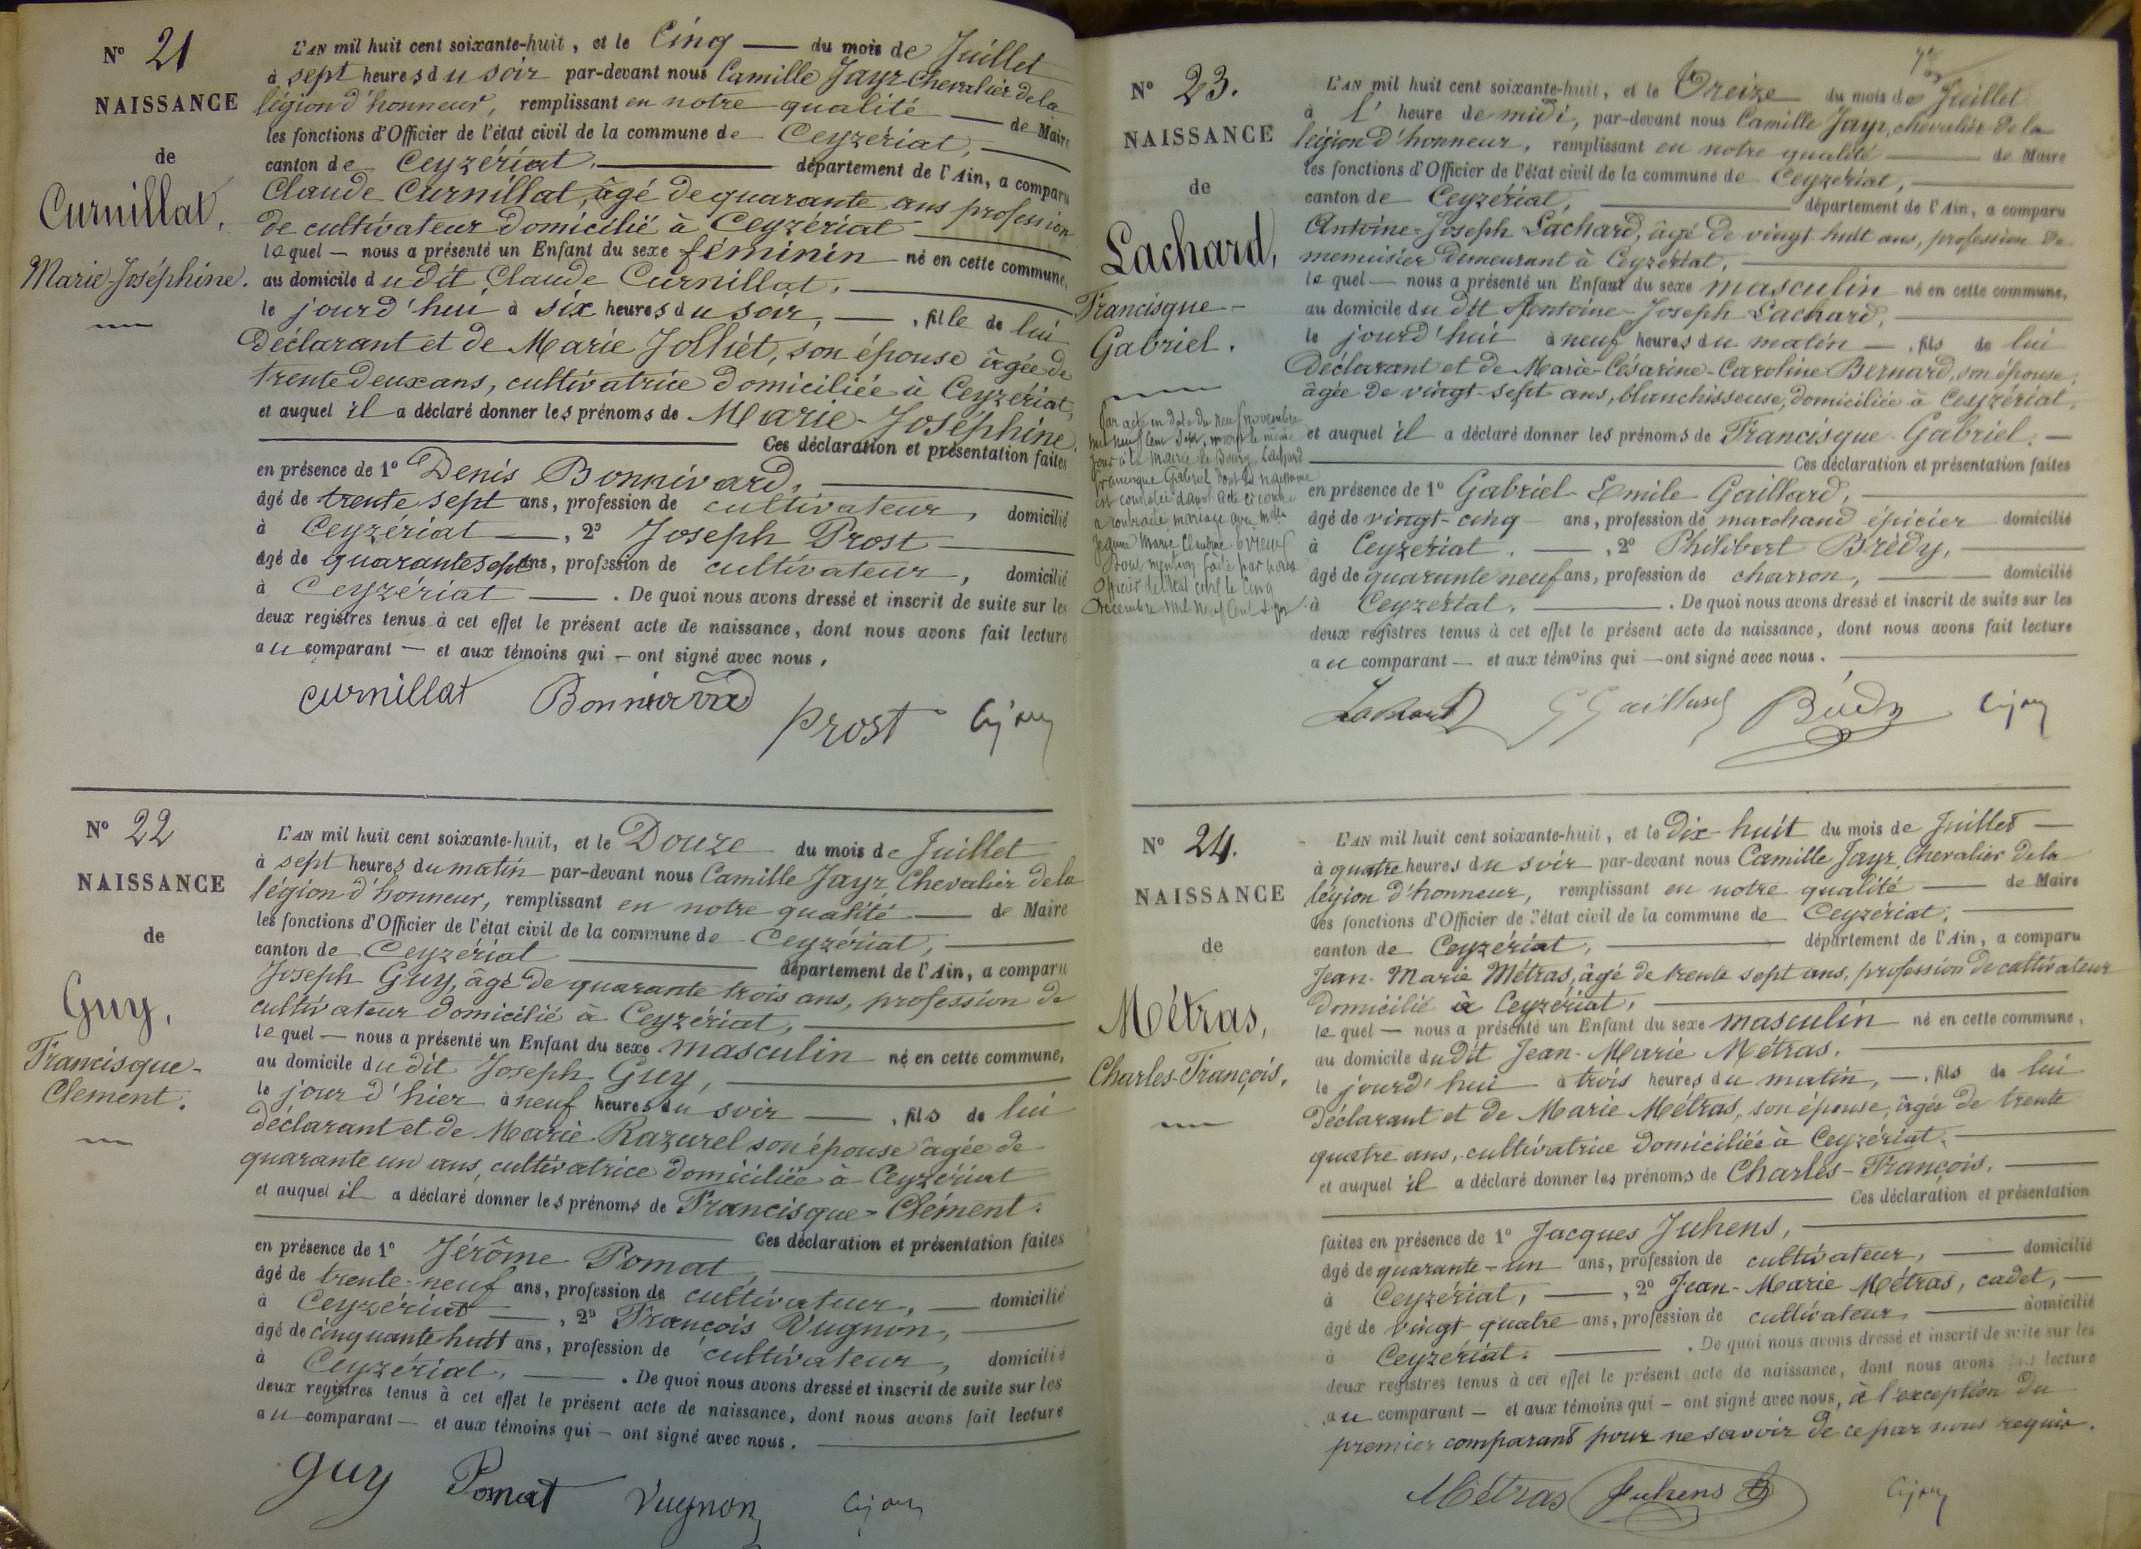 N° 21
NAISSANCE
de
Curnillat,
Marie-Joséphine.
L'AN mil huit cent soixante-huit, et le Cinq — du mois de Juillet
à sept heures du soir par-devant nous Camille Jayr Chevalier de la
légion d'honneur, remplissant en notre qualité — de Maire
les fonctions d'Officier de l'état civil de la commune de Ceyzériat, —
canton de Ceyzériat. — département de l'Ain, a comparu
Claude Curnillat, âgé de quarante ans profession
de cultivateur domicilié à Ceyzériat —
lequel — nous a présenté un Enfant du sexe féminin né en cette commune,
au domicile dudit Claude Curnillat, —
le jourd'hui à six heures du soir, — , fille de lui
Déclarant et de Marie Jolliet, son épouse âgée de
trente deux ans, cultivatrice domiciliée à Ceyzériat,
et auquel il a déclaré donner les prénoms de Marie-Joséphine
— Ces déclaration et présentation faites
en présence de 1° Denis Bonnivard, —
âgé de trente sept ans, profession de cultivateur, domicilié
à Ceyzériat —, 2° Joseph Prost —
âgé de quarante sept ans, profession de cultivateur, domicilié
à Ceyzériat — . De quoi nous avons dressé et inscrit de suite sur les
deux registres tenus à cet effet le présent acte de naissance, dont nous avons fait lecture
au comparant — et aux témoins qui — ont signé avec nous,
Curnillat Bonnivard
Prost
N° 22
NAISSANCE
de
Guy,
Francisque-
Clement.
L'AN mil huit cent soixante-huit, et le Douze du mois de Juillet
à sept heures du matin par-devant nous Camille Jayr, Chevalier de la
légion d'honneur, remplissant en notre qualité — de Maire
les fonctions d'Officier de l'état civil de la commune de Ceyzériat, —
canton de Ceyzériat — département de l'Ain, a comparu
Joseph Guy, âgé de quarante trois ans, profession de
cultivateur domicilié à Ceyzériat, —
lequel — nous a présenté un Enfant du sexe masculin né en cette commune,
au domicile dudit Joseph Guy, —
le jour d'hier à neuf heures du soir — , fils de lui
déclarant et de Marie Razurel son épouse âgée de
quarante un ans, cultivatrice domiciliée à Ceyzériat
et auquel il a déclaré donner les prénoms de Francisque-Clément.
— Ces déclaration et présentation faites
en présence de 1° Jérôme Pomat —
âgé de trente-neuf ans, profession de cultivateur, — domicilié
à Ceyzériat —, 2° François Vugnon, —
âgé de cinquante huit ans, profession de cultivateur, domicilié
à Ceyzériat. — . De quoi nous avons dressé et inscrit de suite sur les
deux registres tenus à cet effet le présent acte de naissance, dont nous avons fait lecture
au comparant — et aux témoins qui — ont signé avec nous. —
Guy Pomat Vugnon
N° 23.
NAISSANCE
de
Lachard,
Francisque-
Gabriel.
Par acte en date du neuf novembre
mil neuf cent
jour à la mairie de Bourg, Lachard
Francisque Gabriel dont la naissance
est constatée dans l'acte ci contre
a contracté mariage avec
Marie Claudine
sous mention faite par nous
Officier de l'état civil le cinq
Décembre mil neuf cent
L'AN mil huit cent soixante-huit, et le Treize du mois de Juillet
à l' heure de midi, par-devant nous Camille Jayr, chevalier de la
légion d'honneur, remplissant en notre qualité — de Maire
les fonctions d'Officier de l'état civil de la commune de Ceyzériat, —
canton de Ceyzériat, — département de l'Ain, a comparu
Antoine-Joseph Lachard, âgé de vingt huit ans, profession de
menuisier demeurant à Ceyzériat, —
lequel — nous a présenté un Enfant du sexe masculin né en cette commune,
au domicile du dit Antoine-Joseph Lachard, —
le jourd'hui à neuf heures du matin — , fils de lui
Déclarant et de Marie-Césarine-Caroline Bernard, son épouse,
âgée de vingt-sept ans, blanchisseuse, domiciliée à Ceyzériat,
et auquel il a déclaré donner les prénoms de Francisque-Gabriel. —
— Ces déclaration et présentation faites
en présence de 1° Gabriel-Emile Gaillard, —
âgé de vingt-cinq ans, profession de marchand épicier domicilié
à Ceyzériat. —, 2° Philibert Brédy, —
âgé de quarante neuf ans, profession de charron, — domicilié
à Ceyzériat. — . De quoi nous avons dressé et inscrit de suite sur les
deux registres tenus à cet effet le présent acte de naissance, dont nous avons fait lecture
au comparant — et aux témoins qui — ont signé avec nous. —
Lachard G Gaillard Brédy
N° 24.
NAISSANCE
de
Métras,
Charles-François.
L'AN mil huit cent soixante-huit, et le Dix-huit du mois de Juillet —
à quatre heures du soir par-devant nous Camille Jayr, Chevalier de la
légion d'honneur, remplissant en notre qualité — de Maire
les fonctions d'Officier de l'état civil de la commune de Ceyzériat, —
canton de Ceyzériat, — département de l'Ain, a comparu
Jean-Marie Métras, âgé de trente sept ans, profession de cultivateur
domicilié à Ceyzériat, —
lequel — nous a présenté un Enfant du sexe masculin né en cette commune,
au domicile dudit Jean-Marie Métras. —
le jourd'hui à trois heures du matin, — , fils de lui
Déclarant et de Marie Métras, son épouse, âgée de trente
quatre ans, cultivatrice domiciliée à Ceyzériat. —
et auquel il a déclaré donner les prénoms de Charles-François. —
— Ces déclaration et présentation
faites en présence de 1° Jacques Juhens, —
âgé de quarante-un ans, profession de cultivateur, — domicilié
à Ceyzériat, —, 2° Jean-Marie Métras, cadet, —
âgé de vingt quatre ans, profession de cultivateur — domicilié
à Ceyzériat. — . De quoi nous avons dressé et inscrit de suite sur les
deux registres tenus à cet effet le présent acte de naissance, dont nous avons fait lecture
au comparant — et aux témoins qui — ont signé avec nous, à l'exception du
premier comparant pour ne savoir de ce par nous requis.
Métras Juhens